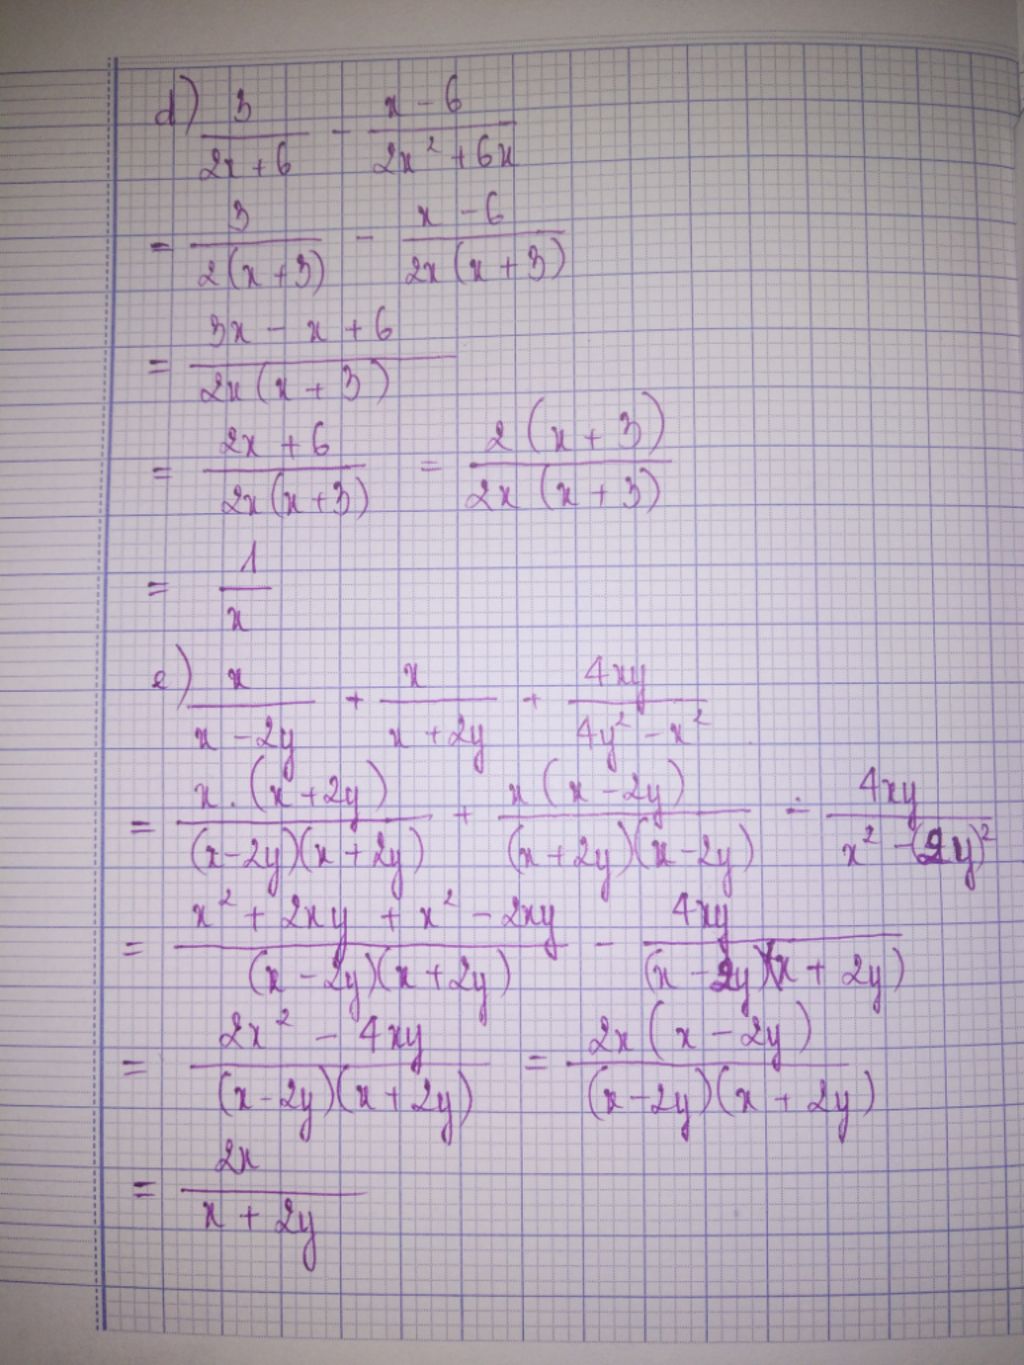 d) 3/(2x+6) - (x-6)/(2x²+6x)
= 3/(2(x+3)) - (x-6)/(2x(x+3))
= (3x - x + 6)/(2x(x+3))
= (2x+6)/(2x(x+3)) = (2(x+3))/(2x(x+3))
= 1/x
e) x/(x-2y) + x/(x+2y) + 4xy/(4y²-x²)
= (x.(x+2y))/((x-2y)(x+2y)) + (x(x-2y))/((x+2y)(x-2y)) - 4xy/(x²-(2y)²)
= (x²+2xy+x²-2xy)/((x-2y)(x+2y)) - 4xy/((x-2y)(x+2y))
= (2x²-4xy)/((x-2y)(x+2y)) = (2x(x-2y))/((x-2y)(x+2y))
= 2x/(x+2y)